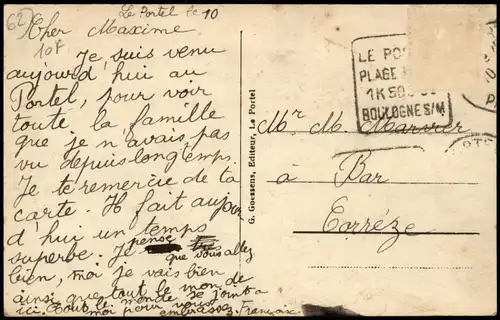 62
Le Portel le 10
Cher Maxime
10F
Je suis venu
aujourd'hui au
Portel, pour voir
toute la famille
que je n'avais pas
vu depuis longtemps.
Je te remercie de ta
carte. Il fait aujour
d'hui un temps
superbe. Je pense
que vous allez
bien, moi je vais bien
ainsi que tout le monde
ici. Tout le monde se joint a
moi pour vous
embrasser. François
G. Goessens, Editeur, Le Portel
LE PO
PLAGE
1K500
BOULOGNE S/M
Mr M. Marvier
à Bar
Corréze